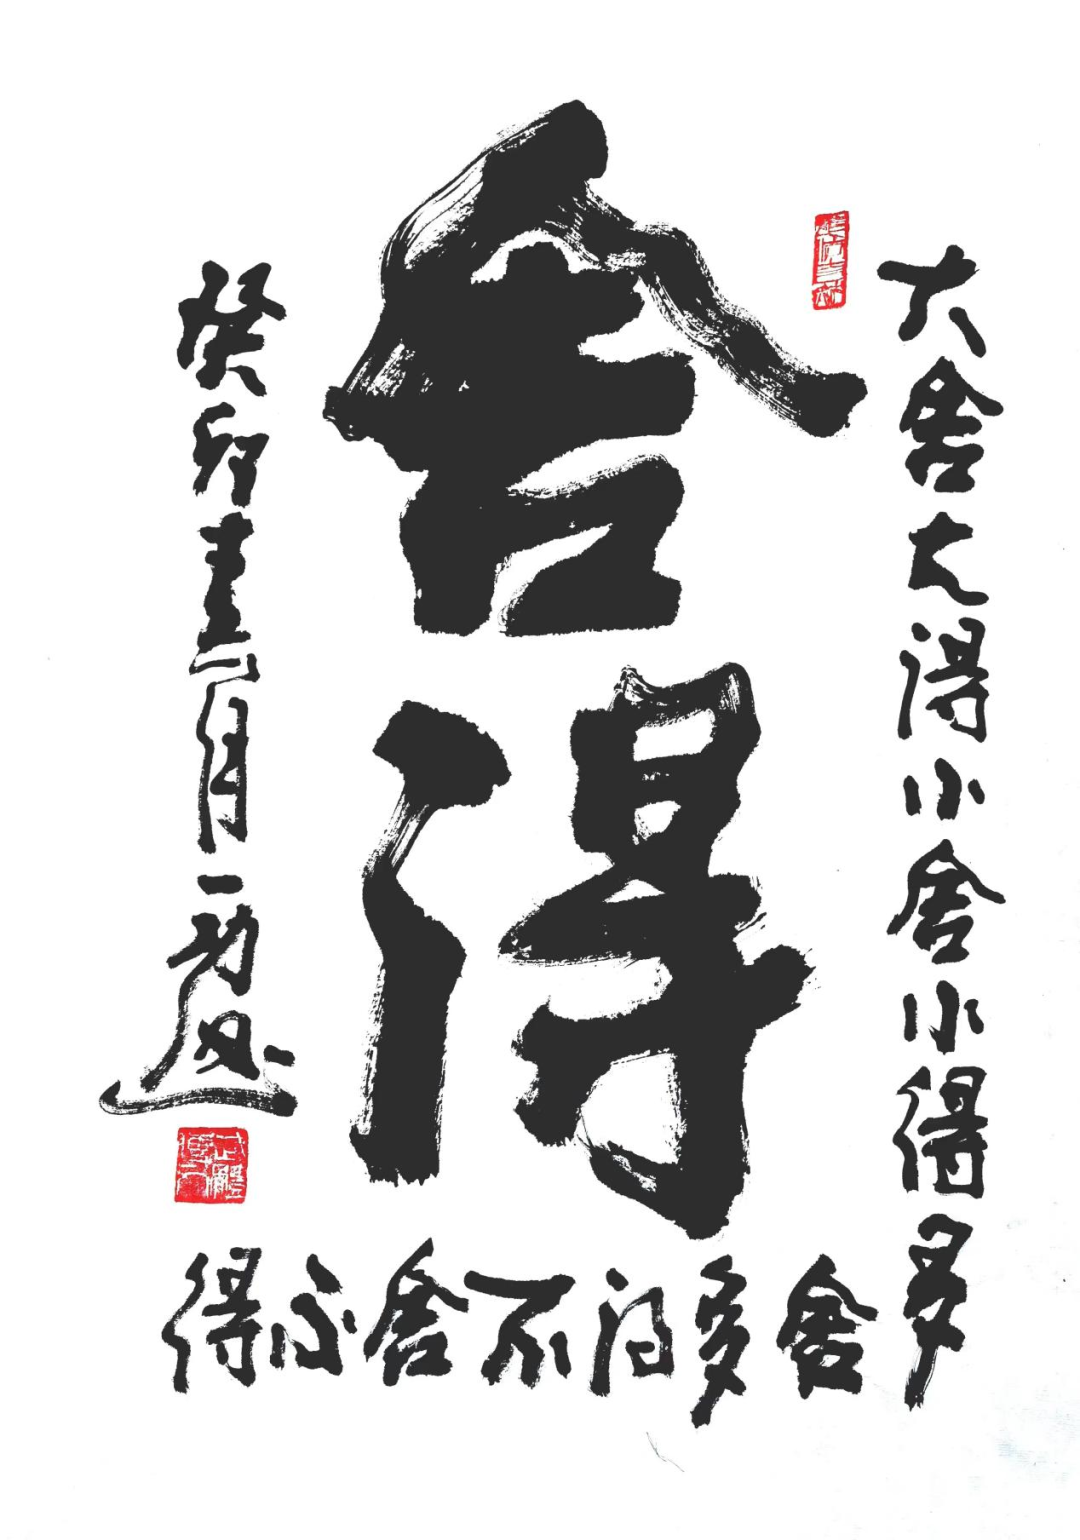 舍得
大舍大得小舍小得多
舍多得不舍不得
癸卯春二月一功